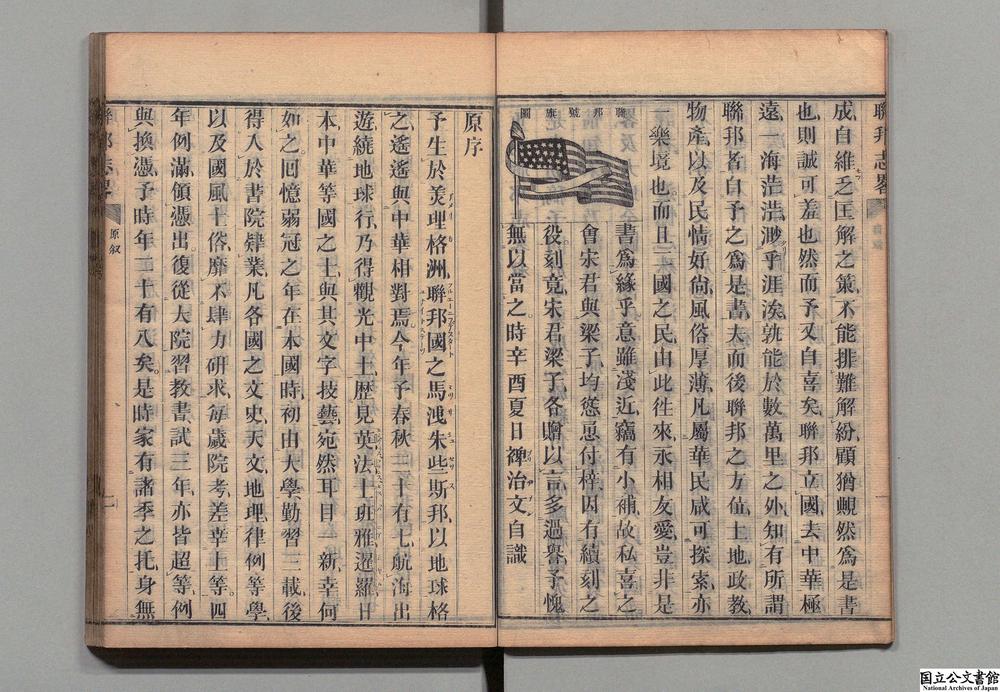 聯邦志畧
成自維乏匡解之策不能排難解紛顧猶靦然為是書
也則誠可羞也然而予又自喜矣聯邦立國去中華極
遠一海茫茫渺乎涯涘孰能於數萬里之外知有所謂
聯邦者自予之為是書夫而後聯邦之方位土地政教
物產以及民情好尚風俗厚薄凡屬華民咸可探索亦
一樂境也而且二國之民由此往來永相友愛豈非是
書為緣乎意雖淺近竊有小補故私喜之
會宋君與梁子均慫恿付梓因有續刻之
役刻竟宋君梁子各贈以言多過譽予愧
無以當之時辛酉夏日裨治文自識
聯邦號旗圖
原序
予生於美理格洲聯邦國之馬洩朱些斯邦以地球格
之遙遙與中華相對焉今年予春秋三十有七航海出
遊繞地球行乃得觀光中土歷見英法士班雅暹羅日
本中華等國之士與其文字技藝宛然耳目一新幸何
如之回憶弱冠之年在本國時初由大學勤習三載後
得入於書院肄業凡各國之文史天文地理律例等學
以及國風士俗靡不肆力研求每歲院考差幸上等四
年例滿領憑出復從大院習教書試三年亦皆超等例
與換憑予時年二十有八矣是時家有諸季之托身無
聯邦志畧
原叙
国立公文書館
National Archives of Japan